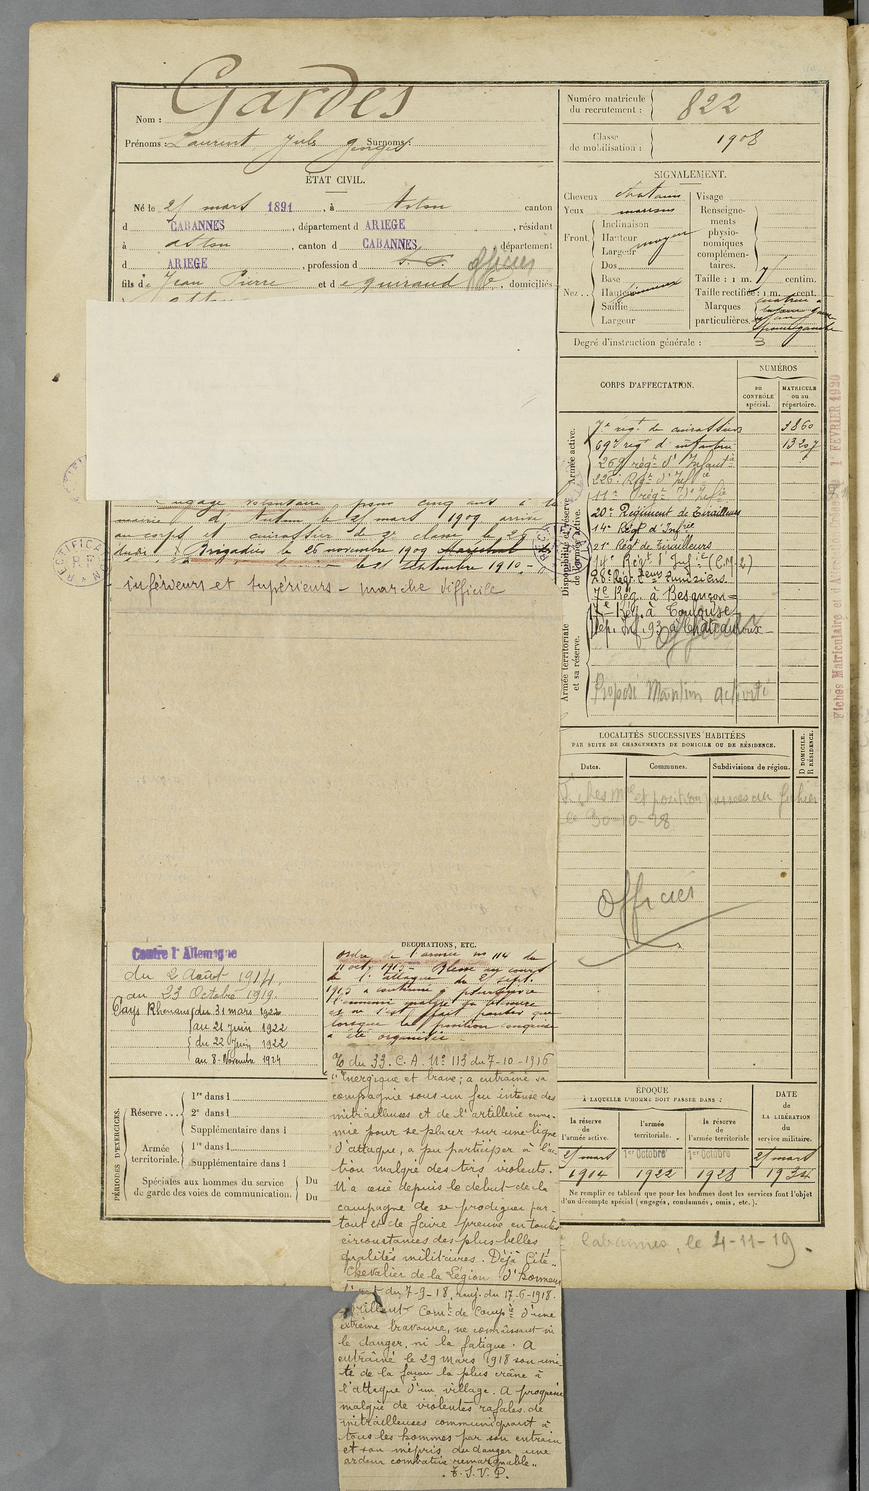 Nom : Gardès
Prénoms : Laurent Jules Georges Surnoms :
ÉTAT CIVIL.
Né le 25 mars 1891, à Aston canton
d CABANNES, département d ARIEGE, résidant
à Aston, canton d CABANNES, département
d ARIEGE, profession d officier
fils de Jean Pierre et de Guiraud E. domiciliés
Numéro matricule du recrutement : 822
Classe de mobilisation : 1908
SIGNALEMENT.
Cheveux chatains
Yeux marrons
Front. Inclinaison
Hauteur moyen
Largeur
Nez .. Dos
Base
Hauteur
Saillie
Largeur
Visage
Renseignements physionomiques complémentaires.
Taille : 1 m. centim.
Taille rectifiée : 1 m. cent.
Marques particulières.
Degré d'instruction générale : 3
CORPS D'AFFECTATION.
NUMÉROS
DU CONTRÔLE spécial.
MATRICULE ou au répertoire.
Armée active.
Disponibilité et réserve de l'armée active.
Armée territoriale et sa réserve.
7e régt de cuirassiers 3860
69e régt d'infanterie 13207
269 régt d'Infantie
226e Régt d'Inf ie
11e régt d'Infie
20e Régiment de Tirailleurs
14e Régt d'Infrie
21e Régt de Tirailleurs
14e Régt d'Infie (C.M.2)
28e Régt de Tirs Tunisiens
7e Rég. à Besançon =
17e Rég. à Toulouse
Dép. Inf. 93 à Châteauroux
officier
Proposé Maintien activité
Fiches Matriculaire et d'Affectation 1 FEVRIER 1920
RECTIFICATION
engagé volontaire pour cinq ans à la
mairie d'Autun le 25 mars 1909 arrivé
au corps et cuirassier de 2e classe le 29
dudit. Brigadier le 26 novembre 1909 Maréchal
septembre 1910 -
inférieurs et supérieurs - marche difficile
LOCALITÉS SUCCESSIVES HABITÉES
PAR SUITE DE CHANGEMENTS DE DOMICILE OU DE RÉSIDENCE.
Dates.
Communes.
Subdivisions de région.
D DOMICILE. R RÉSIDENCE.
et position passées au fichier
le 30-10-28
officier
Contre l'Allemagne
du 2 Août 1914
au 23 Octobre 1919.
Pays Rhénans du 31 mars 1922
au 21 Juin 1922
du 22 Juin 1922
au 8 Novembre 1924
DÉCORATIONS, ETC.
ordre de l'armée no 114 du
11 oct. 1915 - Blessé au cours
de l'attaque du 2 sept.
1915 a continué à poursuivre
l'ennemi malgré sa blessure
et ne s'est fait panser que
lorsque la position conquise
a été organisée.
O/ du 33. C.A. No 113 du 7-10-1916
"Energique et brave ; a entraîné sa
compagnie sous un feu intense des
mitrailleuses et de l'artillerie enne-
mie pour se placer sur une ligne
d'attaque, a pu participer à l'ac-
tion malgré des tirs violents.
N'a cessé depuis le début de la
campagne de se prodiguer par-
tout et de faire preuve en toutes
circonstances des plus belles
qualités militaires. Déjà Cité"
Chevalier de la Légion d'honneur
du 7-9-18, rang du 17-6-1918.
brillant Comt de Compie d'une
extrême bravoure, ne connaissant ni
le danger, ni la fatigue. A
entraîné le 29 mars 1918 son uni-
té de la façon la plus crâne à
l'attaque d'un village. A progressé
malgré de violentes rafales de
mitrailleuses communiquant à
tous les hommes par son entrain
et son mépris du danger une
ardeur combative remarquable"
. T.S.V.P.
PÉRIODES D'EXERCICES.
Réserve .... 1re dans l
2e dans l
Supplémentaire dans l
Armée territoriale. 1re dans l
Supplémentaire dans l
Spéciales aux hommes du service de garde des voies de communication. Du
Du
ÉPOQUE
À LAQUELLE L'HOMME DOIT PASSER DANS :
la réserve de l'armée active.
l'armée territoriale.
la réserve de l'armée territoriale
DATE de LA LIBÉRATION du service militaire.
25 mars 1914
1er Octobre 1922
1er Octobre 1928
25 mars 1934
Ne remplir ce tableau que pour les hommes dont les services font l'objet
d'un décompte spécial (engagés, condamnés, omis, etc.).
Cabannes, le 4-11-19.